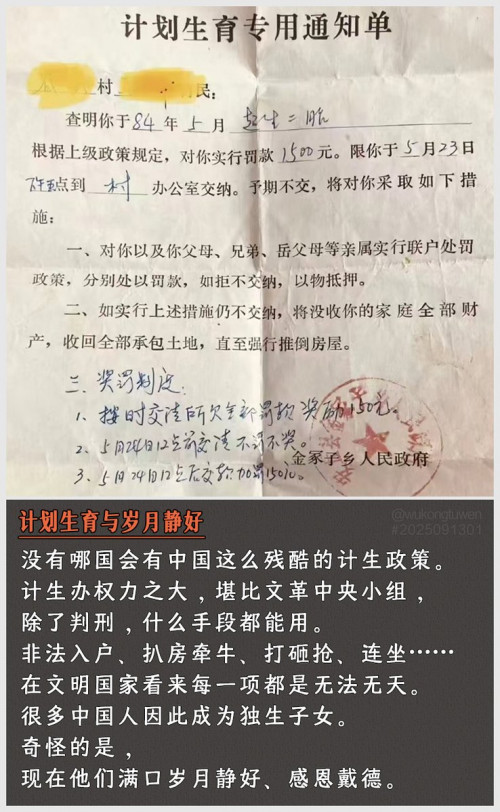 计划生育专用通知单
村 民：
查明你于84年5月 超生二胎
根据上级政策规定，对你实行罚款1500元。限你于5月23日
点到 村 办公室交纳。予期不交，将对你采取如下措
施：
一、对你以及你父母、兄弟、岳父母等亲属实行联户处罚
政策，分别处以罚款，如拒不交纳，以物抵押。
二、如实行上述措施仍不交纳，将没收你的家庭全部财
产，收回全部承包土地，直至强行推倒房屋。
三、奖罚制度.
1、按时交清所欠全部罚款奖励150元。
2、5月24日12点前交清不罚不奖。
3、5月24日12点后交款加罚150元。
金家子乡人民政府
计划生育与岁月静好
@wukongtuwen
#2025091301
没有哪国会有中国这么残酷的计生政策。
计生办权力之大，堪比文革中央小组，
除了判刑，什么手段都能用。
非法入户、扒房牵牛、打砸抢、连坐……
在文明国家看来每一项都是无法无天。
很多中国人因此成为独生子女。
奇怪的是，
现在他们满口岁月静好、感恩戴德。